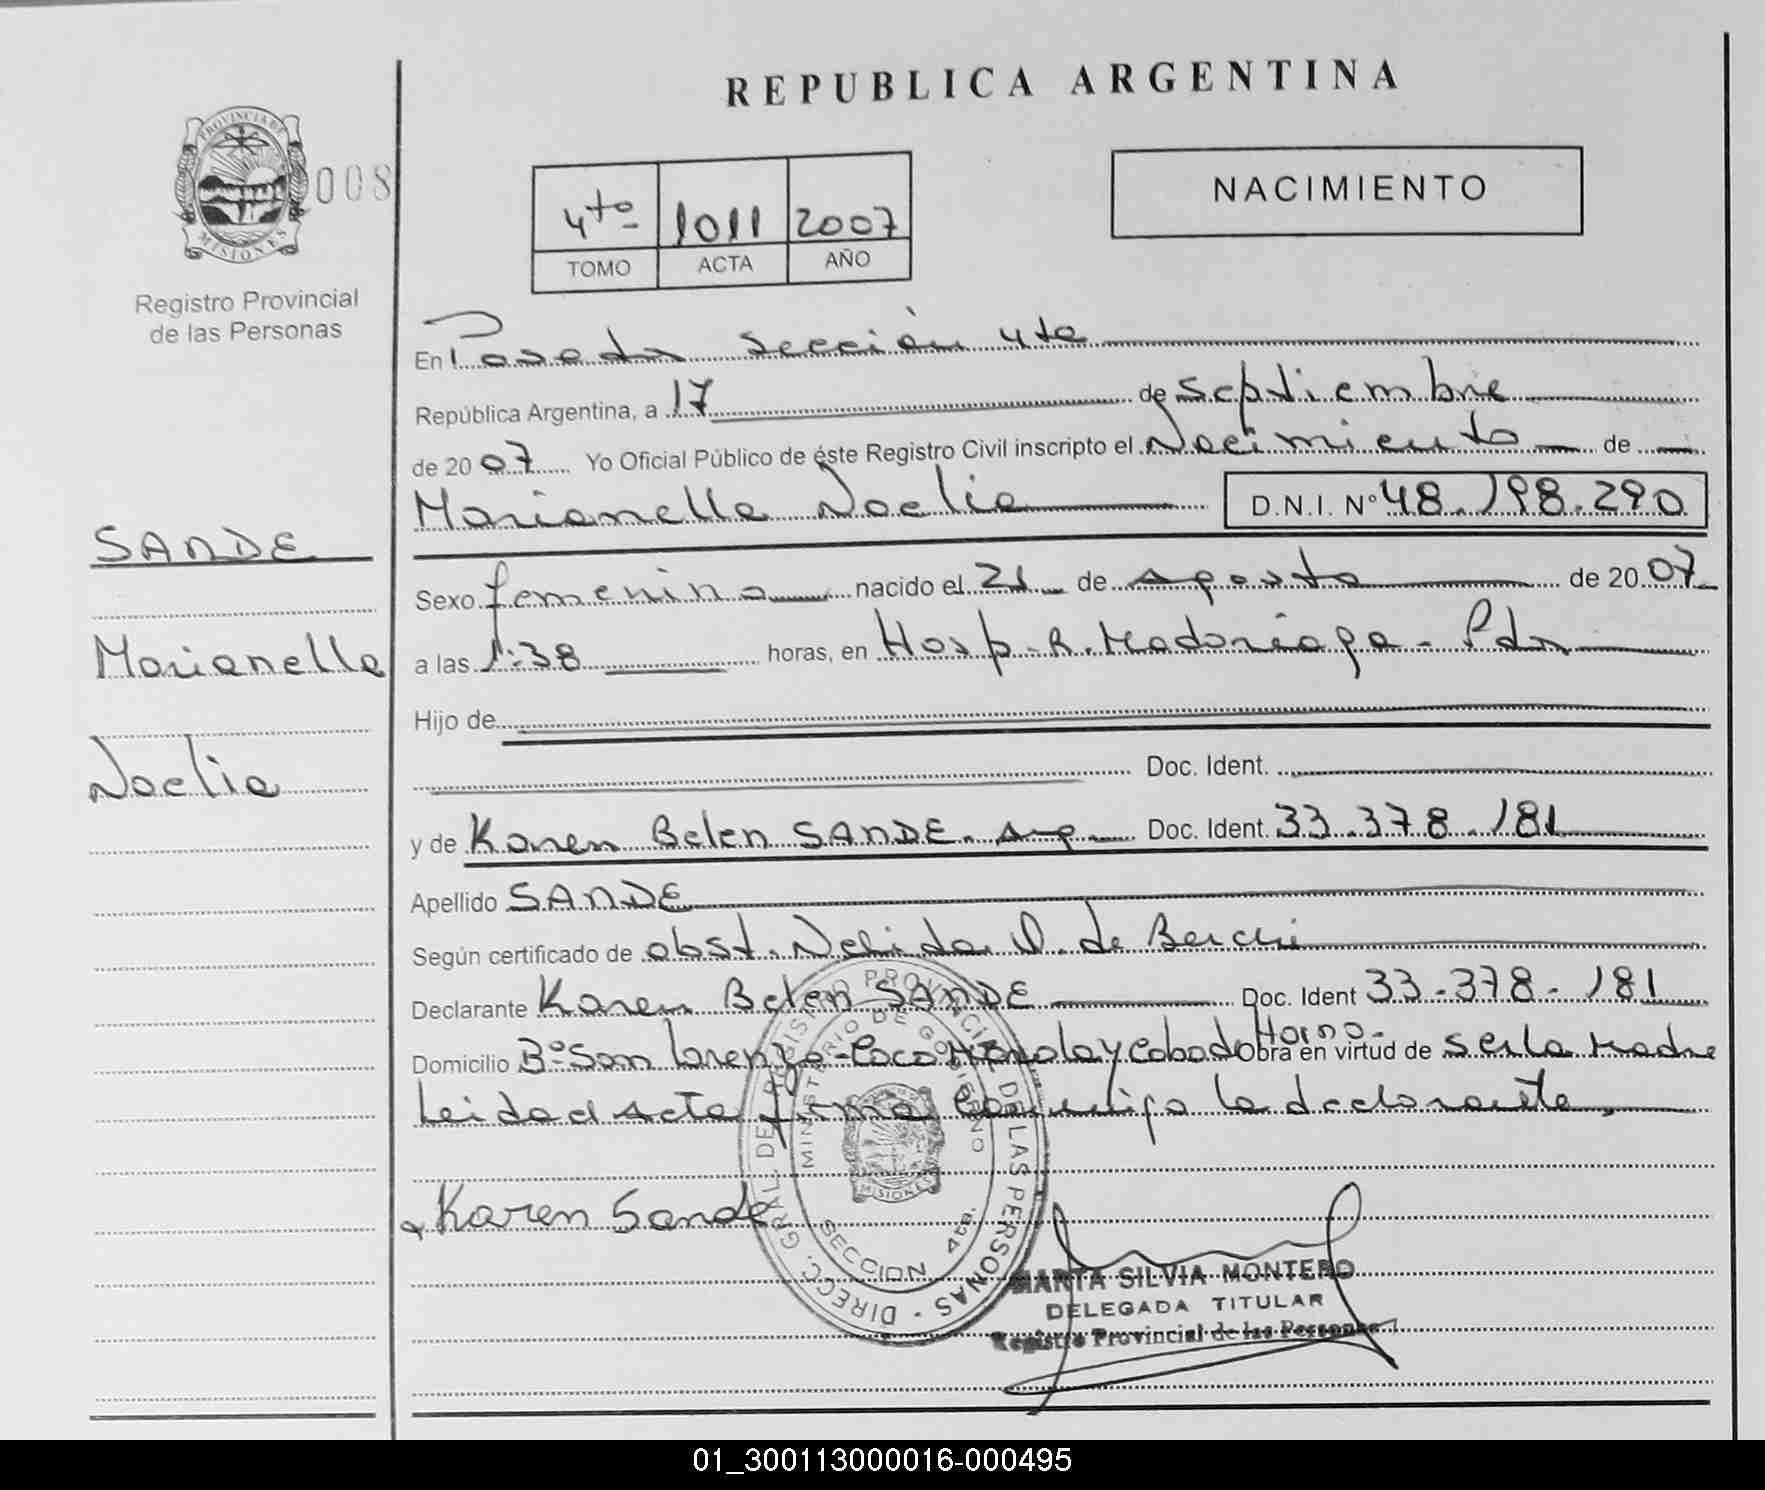 REPUBLICA ARGENTINA
PROVINCIA DE
MISIONES
008
Registro Provincial
de las Personas
4to 1011 2007
TOMO ACTA AÑO
NACIMIENTO
En Posadas Sección 4ta
República Argentina, a 17 de Septiembre
de 2007 Yo Oficial Público de éste Registro Civil inscripto el Nacimiento de
Marianella Noelia D.N.I. Nº 48.198.290
SANDE
Marianella
Noelia
Sexo femenino nacido el 21 de agosto de 2007
a las 1:38 horas, en Hosp. R. Madariaga - Pdas
Hijo de
Doc. Ident.
y de Karen Belen SANDE. Arg. Doc. Ident. 33.378.181
Apellido SANDE
Según certificado de obst. Nelida de
Declarante Karen Belen SANDE Doc. Ident 33-378-181
Domicilio Bº San Lorenzo - y Horno - Obra en virtud de ser la Madre
Leida el Acta firma conmigo la declarante,
Karen Sande
DIRECC. GRAL. DE REGISTRO PROVINCIAL DE LAS PERSONAS
MINISTERIO DE GOBIERNO
MISIONES
SECCION 4ta.
MARTA SILVIA MONTERO
DELEGADA TITULAR
Registro Provincial de las Personas
01_300113000016-000495